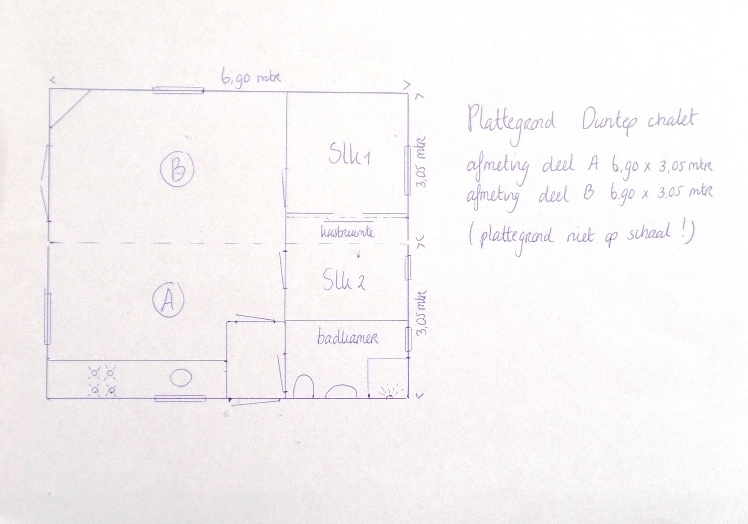 6,90 mtr
Plattegrond Duntep chalet
afmeting deel A 6,90 x 3,05 mtr
afmeting deel B 6.90 x 3.05 mtr
(plattegrond niet op schaal!)
B
Slk 1
3,05 mtr
kastruimte
A
Slk 2
3,05 mtr
badkamer